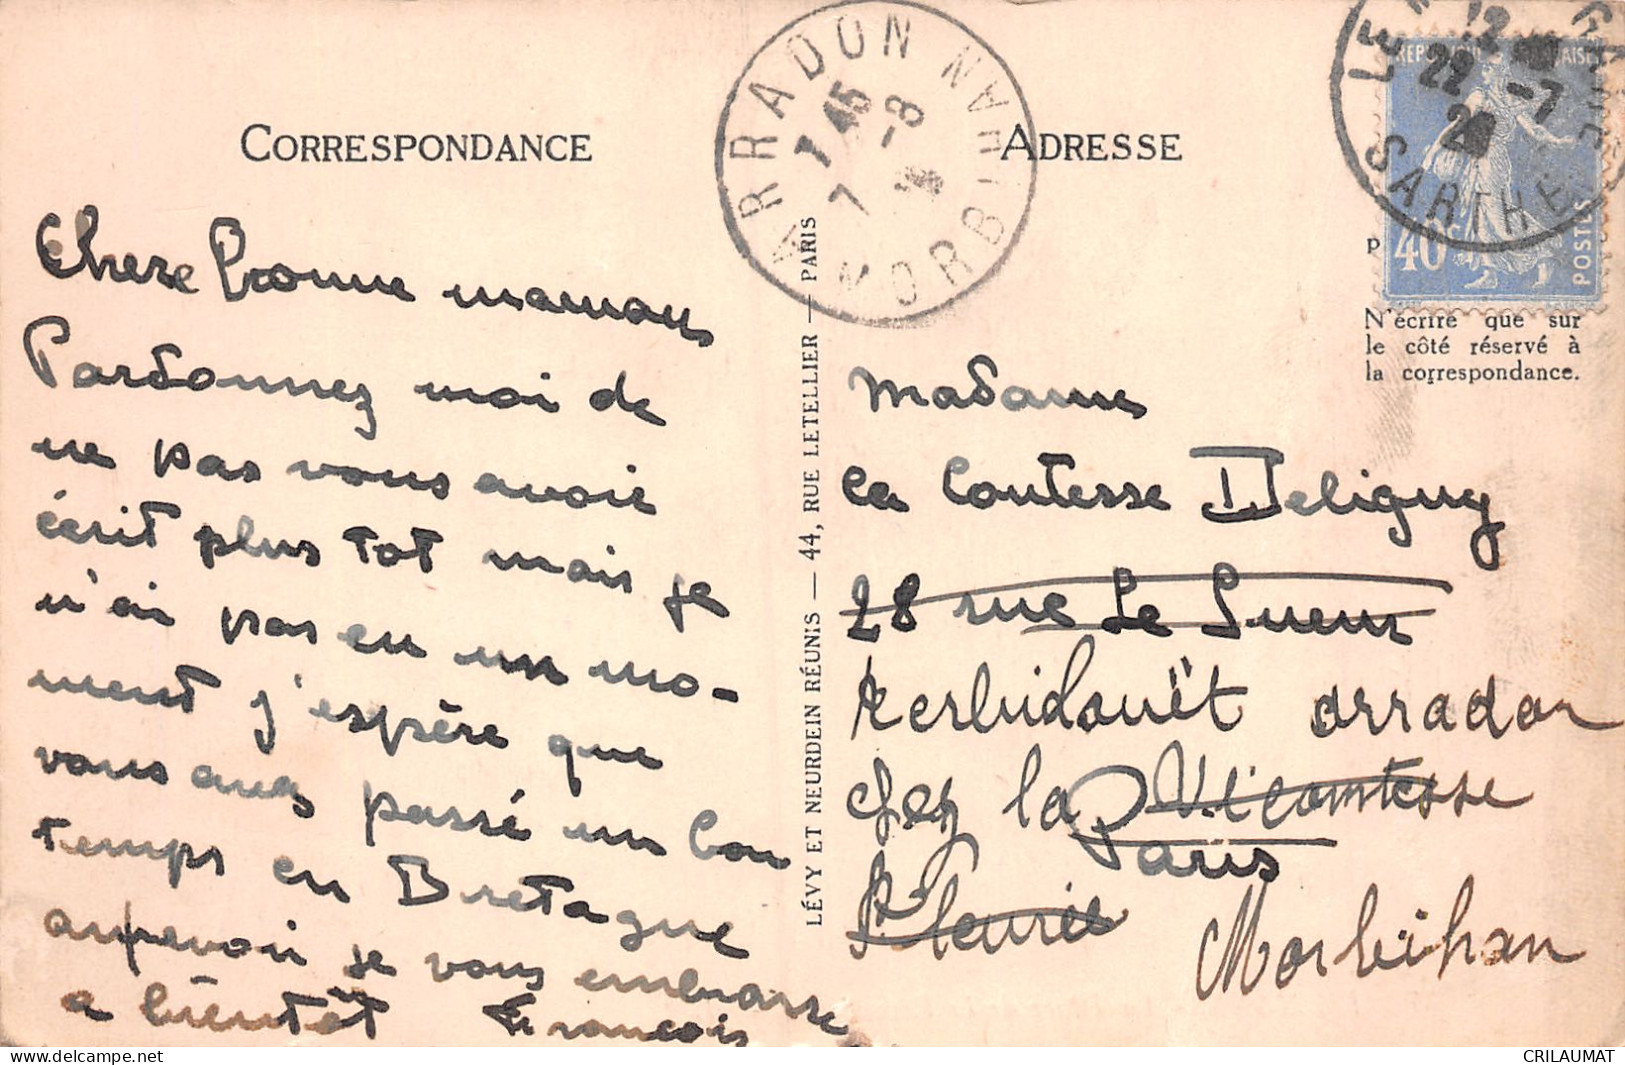 CORRESPONDANCE
ADRESSE
ARRADON MORBIHAN
7 45
7 -8
SARTHE
12
22 -7
REPUBLIQUE
40c
POSTES
N'écrire que sur
le côté réservé à
la correspondance.
LÉVY ET NEURDEIN RÉUNIS — 44, RUE LETELLIER — PARIS
Chere bonne maman
Pardonnez moi de
ne pas vous avoir
écrit plus tot mais je
n'ai pas eu un mo-
ment j'espère que
vous avez passé un bon
temps en Bretagne
aurevoir je vous embrasse
a bientôt François
Madame
la Contesse Deligny
28 rue Le Sueur
Kerbidouët arradon
chez la Vicomtesse
Paris
Fleurie
Morbihan
CRILAUMAT